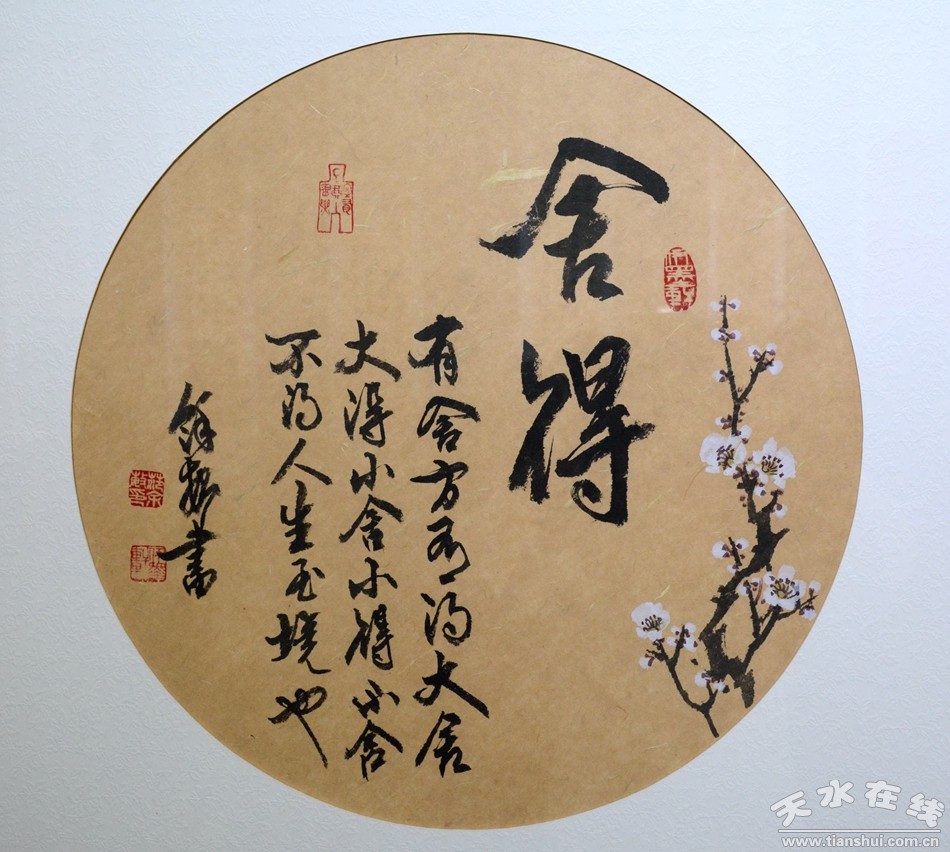 舍得
有舍方有得大舍
大得小舍小得不舍
不得人生至境也
书
天水在线
www.tianshui.com.cn